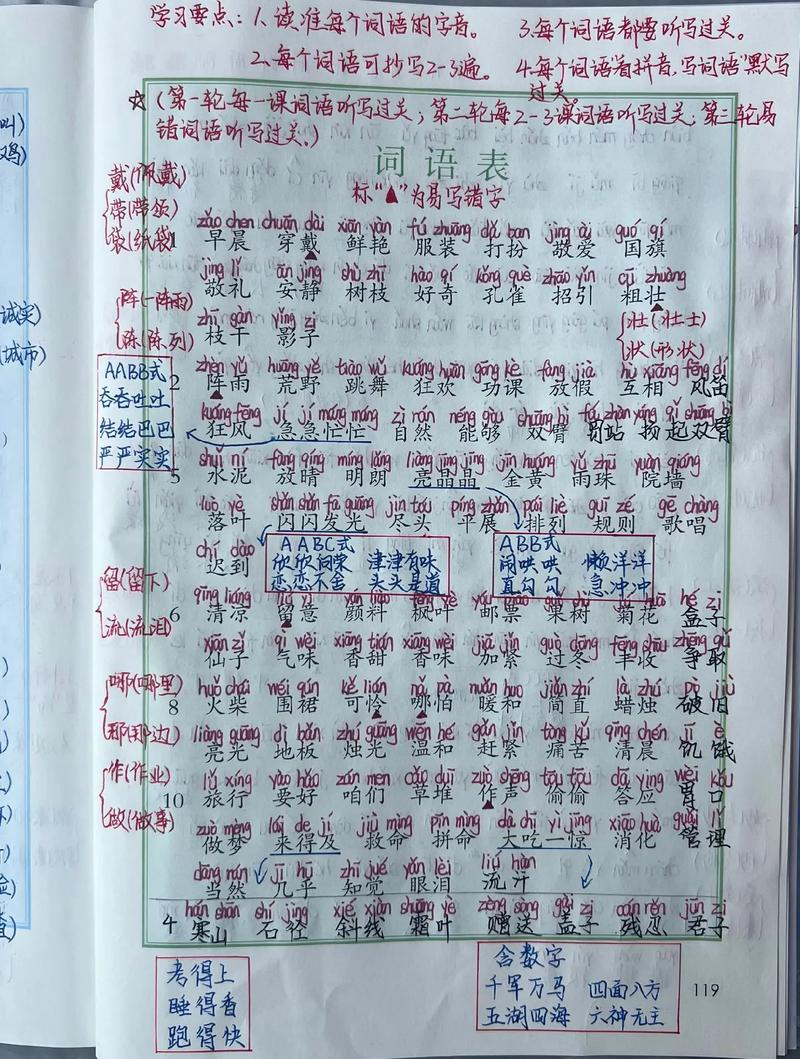 学习要点：1.读准每个词语的字音。 3.每个词语都要听写过关。
2.每个词语可抄写2-3遍。 4.每个词语“看拼音，写词语”默写过关。
☆(第一轮每一课词语听写过关；第二轮每2-3课词语听写过关；第三轮易
错词语听写过关。)
词语表
标“▲”为易写错字
戴(佩戴)
带(带领)
袋(纸袋)
zǎo chen chuān dài xiān yàn fú zhuāng dǎ ban jìng ài guó qí
1 早晨 穿戴 鲜艳 服装 打扮 敬爱 国旗
jìng lǐ ān jìng shù zhī hào qí kǒng què zhāo yǐn cū zhuàng
敬礼 安静 树枝 好奇 孔雀 招引 粗壮
阵(一阵雨)
陈(陈列)
zhī gàn yǐng zi
枝干 影子
壮(壮士)
状(形状)
zhèn yǔ huāng yě tiào wǔ kuáng huān gōng kè fàng jià hù xiāng fēng dí
2 阵雨 荒野 跳舞 狂欢 功课 放假 互相 风笛
AABB式
吞吞吐吐
结结巴巴
严严实实
kuáng fēng jí jí máng máng zì rán néng gòu shuāng bì fá zhàn yáng qǐ shuāng bì
狂风 急急忙忙 自然 能够 双臂 罚站 扬起双臂
shuǐ ní fàng qíng míng lǎng liàng jīng jīng jīn huáng yǔ zhū yuàn qiáng
5 水泥 放晴 明朗 亮晶晶 金黄 雨珠 院墙
luò yè shǎn shǎn fā guāng jìn tóu píng zhǎn pái liè guī zé gē chàng
落叶 闪闪发光 尽头 平展 排列 规则 歌唱
chí dào
迟到
AABC式
欣欣向荣 津津有味
恋恋不舍 头头是道
ABB式
闹哄哄 懒洋洋
直勾勾 急冲冲
留(留下)
流(流泪)
qīng liáng liú yì yán liào fēng yè yóu piào guǒ shù jú huā hé zi
6 清凉 留意 颜料 枫叶 邮票 果树 菊花 盒子
xiān zǐ qì wèi xiāng tián xiāng wèi jiā jǐn guò dōng fēng shōu zhēng qǔ
仙子 气味 香甜 香味 加紧 过冬 丰收 争取
哪(哪里)
那(那边)
huǒ chái wéi qún kě lián nǎ pà nuǎn huo jiǎn zhí là zhú pò jiù
8 火柴 围裙 可怜 哪怕 暖和 简直 蜡烛 破旧
liàng guāng dì bǎn zhú guāng wēn hé gǎn jǐn tòng kǔ qīng chén jī è
亮光 地板 烛光 温和 赶紧 痛苦 清晨 饥饿
作(作业)
做(做事)
lǚ xíng yào hǎo zán men cǎo duī zuò shēng tōu tōu dā ying wèi kǒu
10 旅行 要好 咱们 草堆 作声 偷偷 答应 胃口
zuò mèng lái de jí jiù mìng pīn mìng dà chī yì jīng xiāo huà guǎn lǐ
做梦 来得及 救命 拼命 大吃一惊 消化 管理
dāng rán jī hū zhī jué yǎn lèi liú hàn
当然 几乎 知觉 眼泪 流汗
hán shān shí jìng xié xiàn shuāng yè zèng sòng gài zi cán rěn jūn zǐ
4 寒山 石径 斜线 霜叶 赠送 盖子 残忍 君子
考得上
睡得香
跑得快
含数字
千军万马 四面八方
五湖四海 六神无主
119